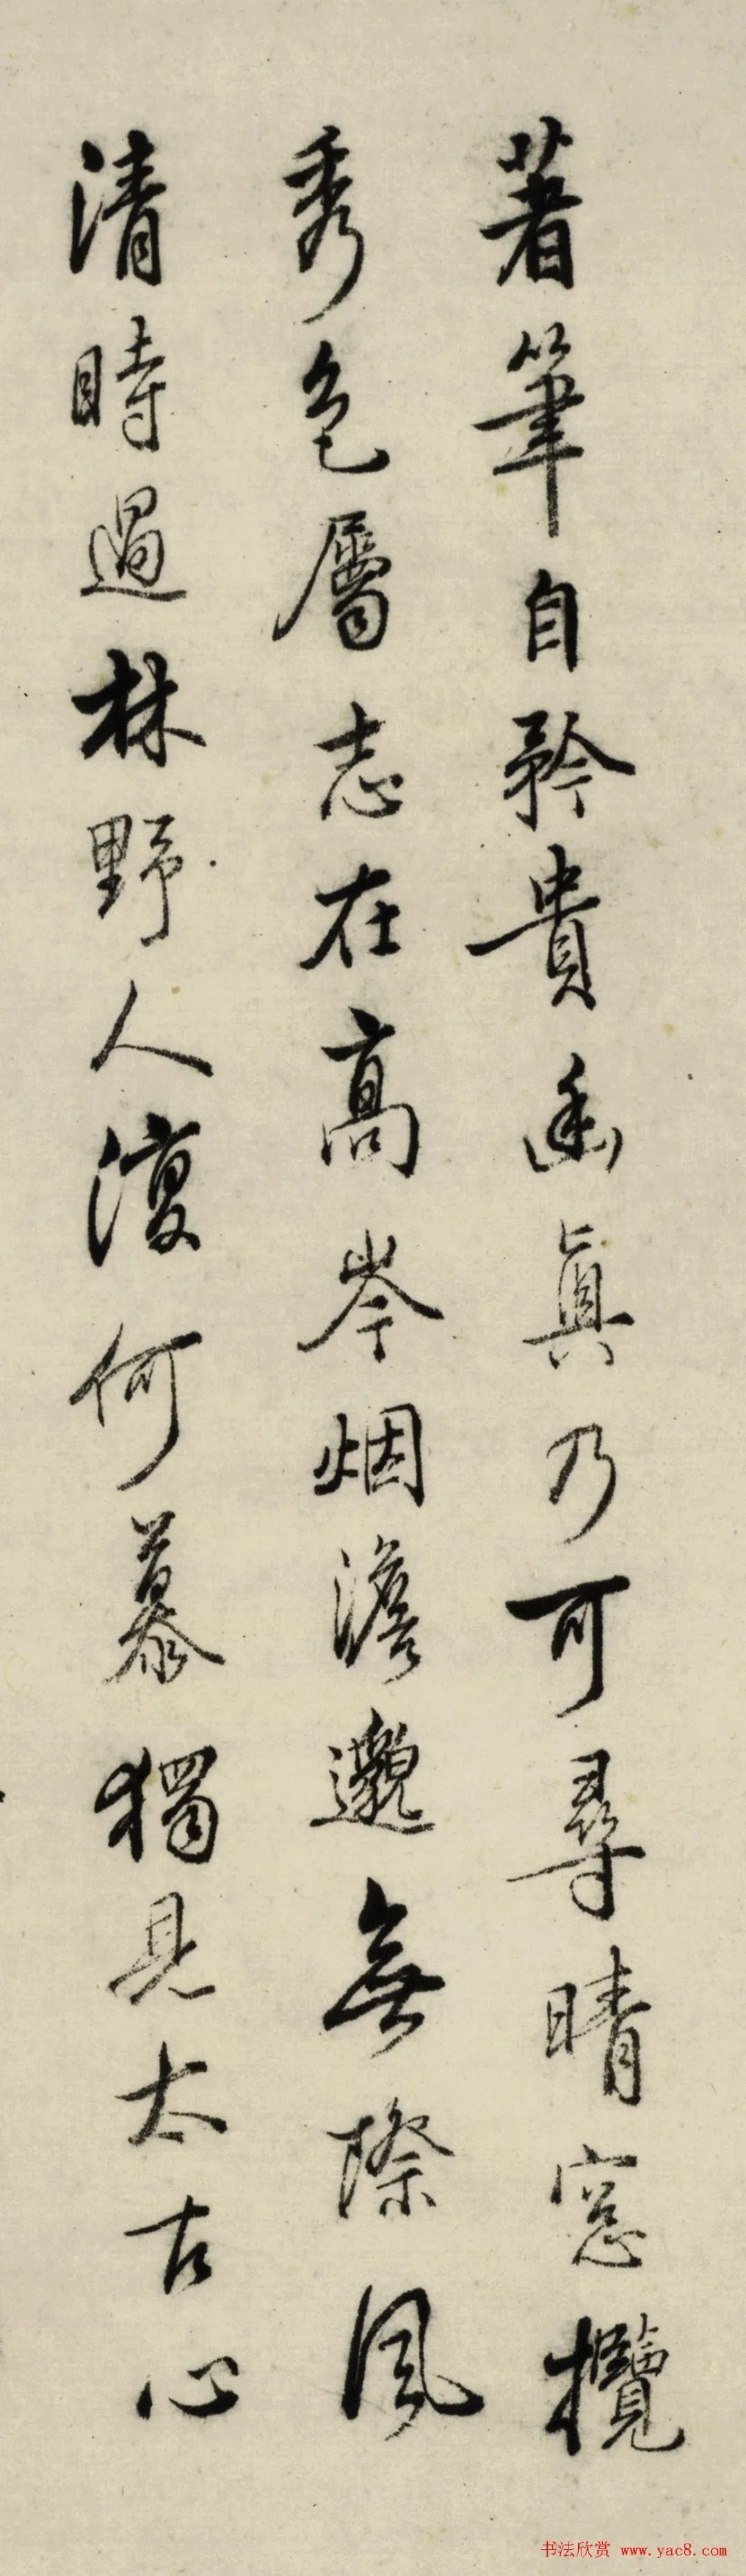 著筆自矜貴幽真乃可尋晴窓攬
秀色屬志在高岑烟澹邈無際風
清時過林野人復何慕獨見太古心
书法欣赏 www.yac8.com